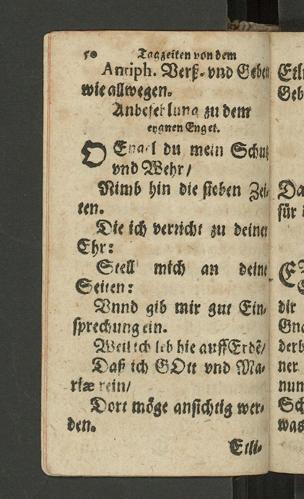 50 Tagzeiten von dem
Antiph. Verß- vnd Gebett
wie allwegen.
Anbefehlung zu dem
eygnen Engel.
O Engel du mein Schutz
vnd Wehr/
Nimb hin die sieben Zei-
ten.
Die ich verricht zu deiner
Ehr:
Stell mich an deine
Seiten:
Vnnd gib mir gut Ein-
sprechung ein.
Weil ich leb hie auff Erdē/
Daß ich GOtt vnd Ma-
riæ rein/
Dort möge ansichtig wer-
den.
Etli-
Etli
Geb
Da
für
dir
Gna
derb
ner
nun
Sch
was